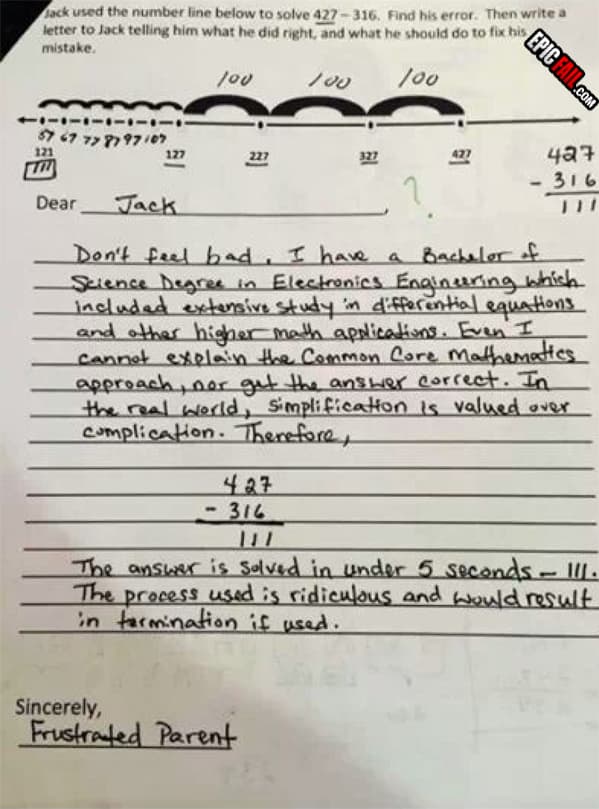 Jack used the number line below to solve 427 – 316. Find his error. Then write a
letter to Jack telling him what he did right, and what he should do to fix his
mistake.
EPIC FAIL.COM
100 100 100
57 67 77 87 97 107
121 127 227 327 427
111
427
- 316
111
Dear Jack, ?
Don't feel bad. I have a Bachelor of
Science Degree in Electronics Engineering which
included extensive study in differential equations
and other higher math applications. Even I
cannot explain the Common Core Mathematics
approach, nor get the answer correct. In
the real world, simplification is valued over
complication. Therefore,
427
- 316
111
The answer is solved in under 5 seconds – 111.
The process used is ridiculous and would result
in termination if used.
Sincerely,
Frustrated Parent